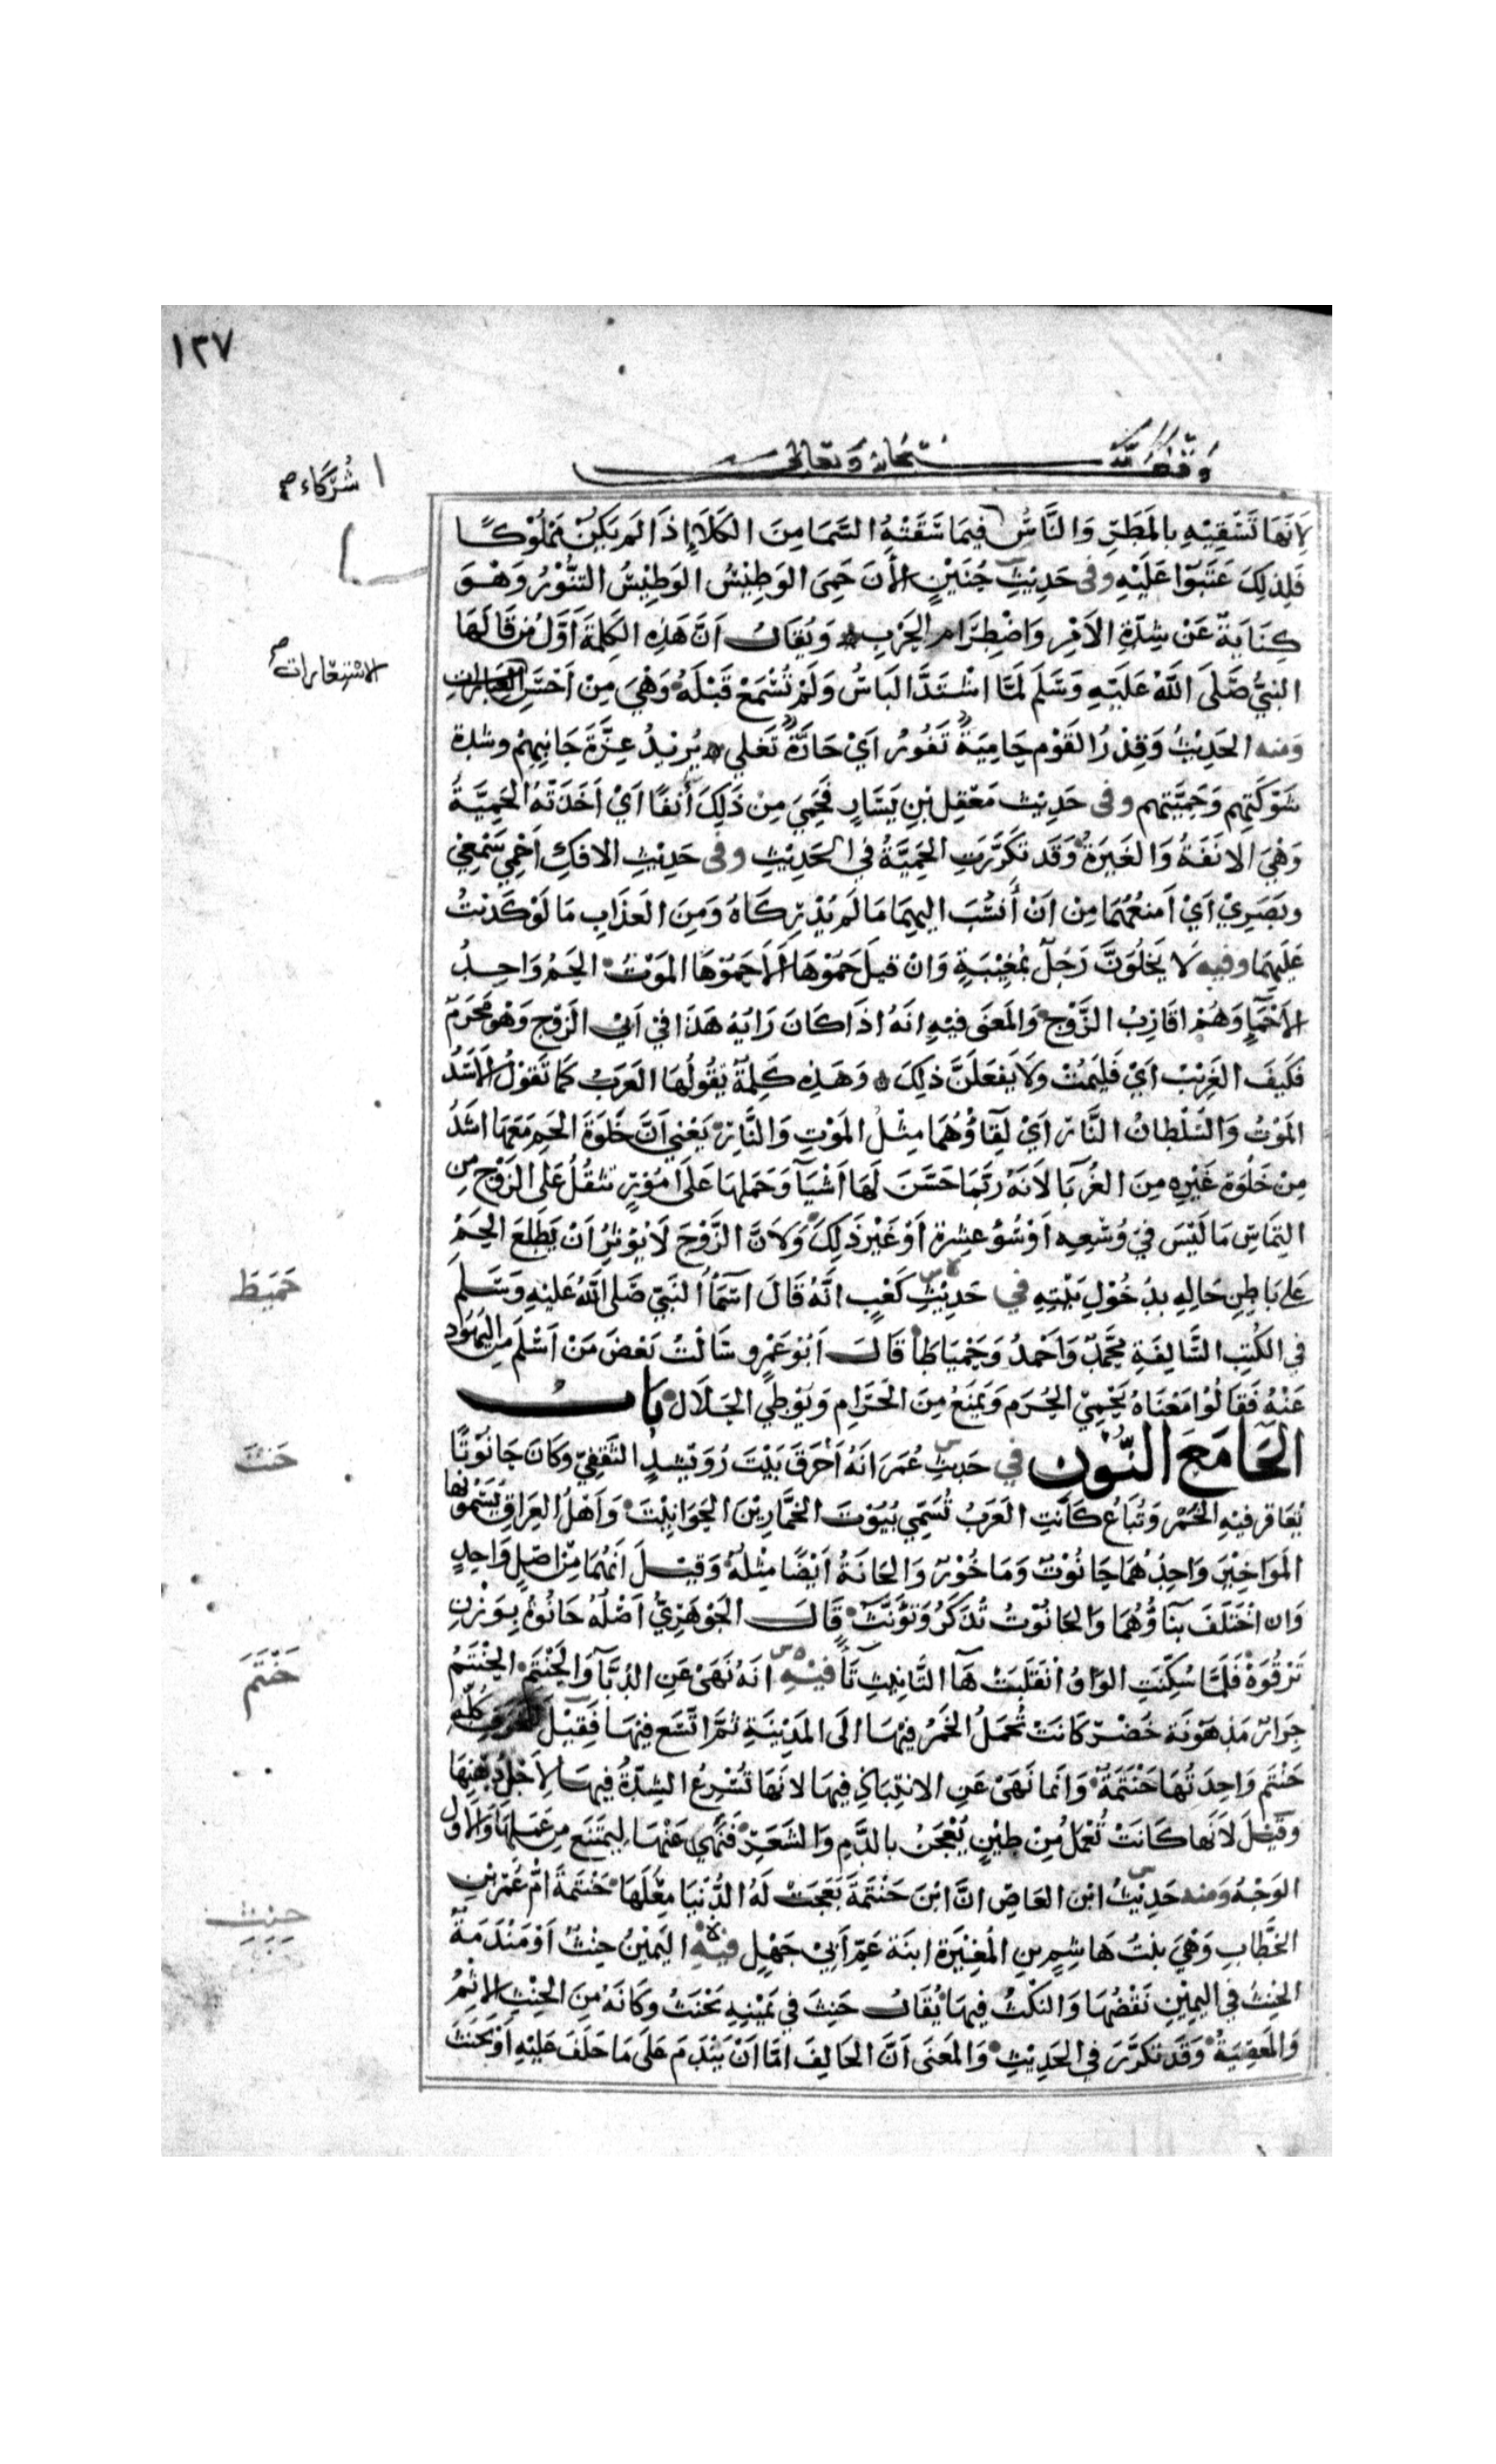 ١٣٧
وقف لله سبحانه وتعالى
شركاء صح
لانها تَسْقِيْهِ بالمَطَرِ وَالنَّاسُ فيمَا سَقَتْهُ السَّمَا مِنَ الكَلَاءِ إِذَا لَم يَكُنْ مَمْلُوْكًا
فَلِذلِكَ عَتَبُوْا عَلَيْهِ وفى حَدِيْثِ حُنَيْنٍ الأنَ حَمِىَ الوَطِيْسُ الوَطِيْسُ التَنُّوْرُ وَهْوَ
كِنَايَةٌ عَنْ شِدَّةِ الاَمْرِ وَاضْطِرَامِ الحَرْبِ وَيُقَالُ اَنَّ هَذِهِ الكَلِمَةَ اَوَّلُ مَنْ قَالَهَا
النبيُّ صَلَى اللَّهُ عَلَيْهِ وَسَلَمَ لَمَّا اشْتَدَّ البَاسُ وَلَمْ تُسْمَعْ قَبْلَهُ وَهْيَ مِنْ اَحْسَنِ
الاسْتِعَارات صح
وَمنه الحَدِيْثُ وَقِدْرُ القَوْمِ حَامِيَةٌ تَفُوْرُ اَيْ حَارَّةٌ تَغلي يُرِيْدُ عِزَّةَ جَانِبِهِمْ وشدة
شَوْكَتِهِم وَحَمِيَّتِهم وفى حَدِيْث مَعْقِل بْنِ يَسَارٍ فَحَمِيَ مِنْ ذَلِكَ أَنفًا اَيْ اَخَذَتْهُ الحَمِيَّةُ
وَهْيَ الانَفَةُ وَالغَيرَةُ وَقَد تكَرَّرَتِ الحَمِيَّةُ في الحَدِيْثِ وفى حَدِيْثِ الافكِ اَحْمِي سَمْعِيْ
وبَصَرِيْ اَيْ اَمنعُهُمَا مِنْ اَنْ أَنسُبَ اليهِمَا مَا لَم يُدْرِكَاهُ وَمِنَ العَذَابِ مَا لَوْ كَذبْتُ
عَلَيهِمَا وفيه لَا يَخْلُوَنَّ رَجُلٌ بمُغِيْبَةٍ وَانْ قيلَ حَمُوْهَا أَلَا حَمُوْهَا المَوْتُ الحَمُ وَاحِدُ
الأَحْمَاءِ وَهُمْ اقَارِبُ الزَّوْجِ وَالمَعْنَى فيهِ انَهُ اذَا كَانَ رَايُهُ هَذَا فيْ اَبِي الزَوْجِ وَهْوَ مَحْرَمٌ
فَكَيفَ الغَرِيْبْ اَيْ فَليَمُتْ وَلَا يَفعَلَنَّ ذلِكَ وَهَذِهِ كَلِمَةٌ يَقُولُهَا العَرَبُ كمَا تَقوْلُ الأَسَدُ
المَوْتُ وَالسُلْطانُ النَّار اَيْ لِقَاؤُهُمَا مِثْلُ المَوْتِ وَالنَّارِ يَعْنِي اَنَّ خَلوَةَ الحَمِ مَعَهَا اشَدُ
مِنْ خَلْوَة غَيْرِهِ مِنَ الغُرَبَا لاَنَهُ رُبَّمَا حَسَّنَ لَهَا اَشْيَآ وَحَملهَا عَلَى امُوْرٍ تثقُلُ عَلى الزَوْج من
التِمَاسِ مَا لَيْسَ فيْ وُسْعِهِ اَوْ سُوْ عِشرة اَوْ غَيْرِ ذَلِكَ وَلاَنَّ الزَّوْجَ لَا يُوْثِرُ اَنْ يَطَلِعَ الحَمُ
حَمَيَط
عَلى بَاطِنِ حَالِهِ بدُخُوْلِ بَيْتِهِ في حَدِيْثِ كَعْبٍ انَّهُ قَالَ اسْمَاُ النَبَيّ صَلى اللهُ عَليْهِ وَسَلمَ
في الكُتِب السَّالِفَةِ مُحَمَّدٌ وَاَحْمَدُ وَحَمْيَاطَا قَالَ اَبُوْ عَمْرٍو سَالْتُ بَعْضَ مَنْ اَسْلَمَ مِنَ اليَهُوْد
عَنْهُ فَقَالُوْا مَعْنَاهُ يَحْمِيْ الحُرَم وَيَمْنَعُ مِنَ الحَرَامِ وَيُوْطِي الحَلَالَ بَابُ
حَنَتَ
الحَا مَعَ النُّوْن في حَديثِ عُمَرَ انَهُ أَحْرَقَ بَيْتَ رُوَيْشِدٍ الثَقَفِيّ وَكَانَ حَانُوْتًا
يُعَاقر فيْهِ الخَمْر وَتُبَاعُ كَانَتِ العَرَبُ تُسَمِّي بُيُوْتَ الخَمَّارِيْنَ الحَوَانِيْتَ وَاَهْلُ العِرَاقِ يُسَمُّوْنَهَا
المَوَاخِيْرَ وَاحِدُهَا حَانُوْتٌ وَمَاخُوْرٌ وَالحَانَةُ اَيْضًا مِثْلُهُ وَقيْلَ انَهُمَا مِنْ اصْلٍ وَاحِدٍ
وَان اخْتَلَفَ بنَاؤُهُمَا وَالحَانُوْتُ تُذَكَّرُ وَتُؤَنَّثُ قَالَ الجَوْهَرِيُّ اَصْلُهُ حَانُوَةٌ بِوَزْنِ
حَنْتَمَ
تَرْقُوَةٍ فَلَمَّا سُكِّنَتِ الوَاوُ انْقَلَبَتْ هَآ التَّانِيْثِ تَآ فيْهِ انَهُ نَهَىْ عَنِ الدُبَّآ وَالحَنْتَمِ الحَنْتَمُ
جِرَارٌ مَدْهُوْنَة خُضْرٌ كَانَتْ تُحْمَلُ الخَمْرُ فيْهَا الَى المَدِيْنَةِ ثمَّ اتَّسَع فيْهَا فَقِيْلَ للخزف كلّه
حَنْتَم وَاحِدَتُهَا حَنْتَمَةٌ وَانَما نَهَىْ عَنِ الانتِبَاذِ فيهَا لانَهَا تُسْرِعُ الشِدّةُ فيهَا لِاَجْلِ دُهْنِهَا
وَقيْلَ لاَنَها كَانَتْ تُعْمَلُ مِنْ طِيْنٍ يُعْجَنُ بالدَّمِ وَالشَعَرِ فَنَهَى عَنْهَا لِيمْتَنَع مِن عَمَلِهَا وَالاَولُ
الوَجْهُ وَمنه حَدِيْثُ ابْن العَاصِ انَّ ابْنَ حَنْتَمَةَ بَعَجَتْ لَهُ الدُّنيَا مِعَاهَا حَنْتَمَةُ امُّ عُمَرَ بْنِ
حِنِثِ
الخَطَّابِ وَهْيَ بنْتُ هَاشِمِ بنِ المُغِيْرَة ابنَة عَمِّ أَبِيْ جَهْلٍ فيْهِ اليَمِيْنُ حِنْثٌ اَوْ مَنْدَمَةٌ
الحِنْثُ في اليَمِيْنِ نَقْضُهَا وَالنَكْثُ فيهَا يُقَالُ حَنِثَ في يَمِيْنِهِ يَحْنَثُ وَكَانَهُ مِنَ الحِنْثِ الاِثْمُ
وَالمَعْصِيَةُ وَقَد تكَرَّرَ في الحَدِيْثِ وَالمَعْنَى اَنَّ الحَالِفَ امَّا اَنْ يَنْدَمَ عَلَى مَا حَلَفَ عَلَيْهِ اَوْ يَحْنَثَ